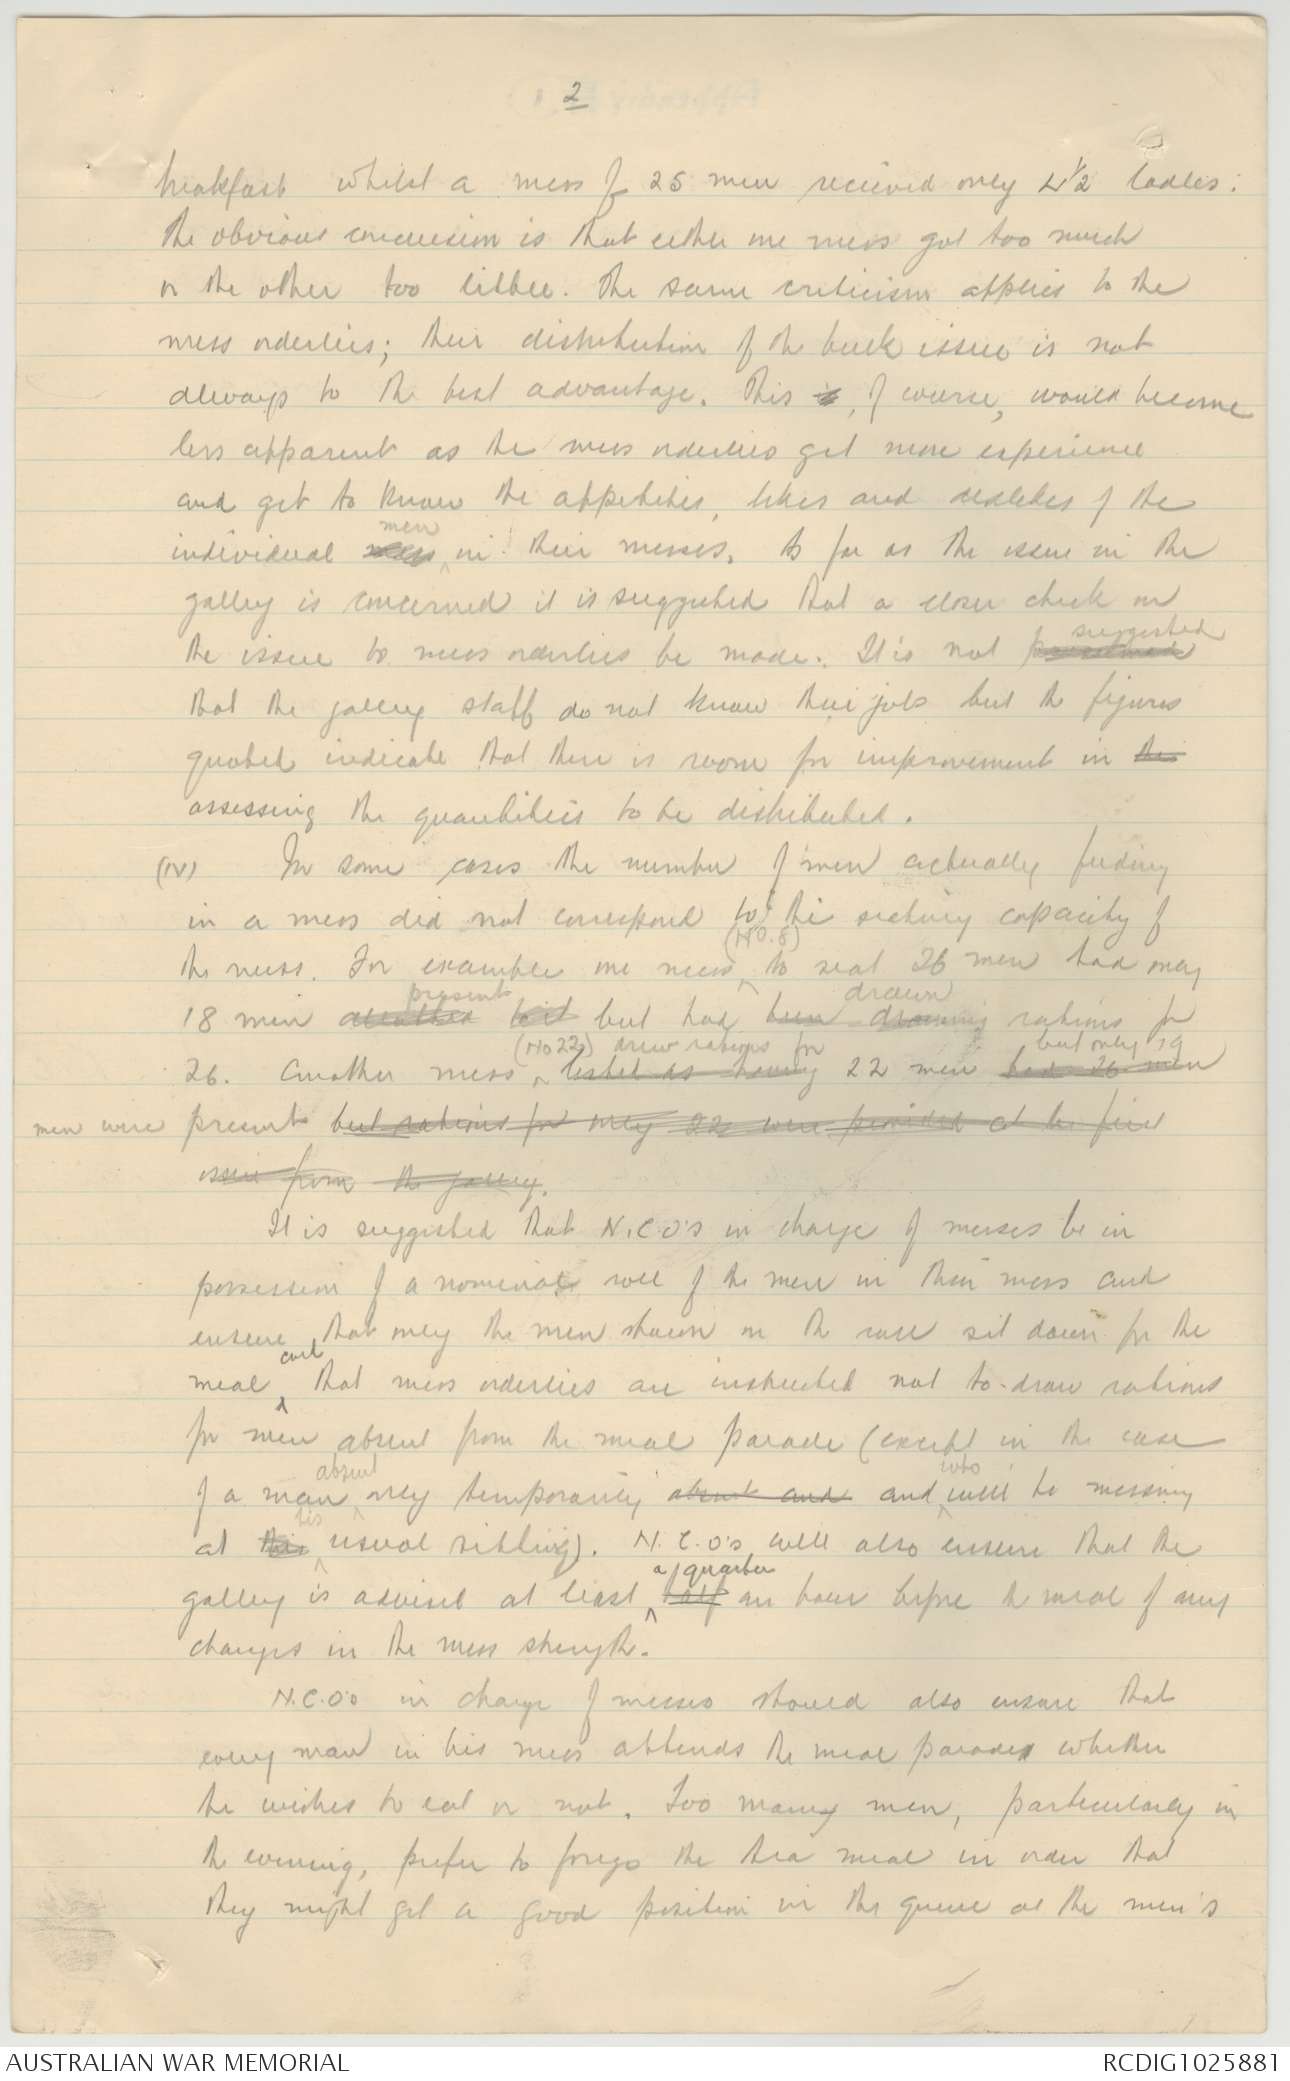 2
breakfast whilst a mess of 25 men received only 4½ ladles:
the obvious conclusion is that either one mess got too much
or the other too little. The same criticism applies to the
mess orderlies; their distribution of the bulk issue is not
always to the best advantage. This is, of course, would become
less apparent as the mess orderlies get more experience
and get to know the appetites, likes and dislikes of the
men
individual in their messes. As far as the issue in the
galley is concerned it is suggested that a closer check on
suggested
the issue to mess orderlies be made. It is not
that the galley staff do not know their job but the figures
quoted indicate that there is room for improvement in the
assessing the quantities to be distributed.
(IV) In some cases the number of men actually feeding
in a mess did not correspond to the seating capacity of
(No. 8)
the mess. For example one mess to seat 26 men had only
present drawn
18 men attended but but had been drawing rations for
(No 22) drew rations for but only 19
26. Another mess listed as having 22 men had 26 men
men were present but rations for only 22 were provided at the first
issue from the galley.
It is suggested that N.C.O's in charge of messes be in
possession of a nominal roll of the men in their mess and
ensure that only the men shown on the roll sit down for the
and
meal that mess orderlies are instructed not to draw rations
for men absent from the meal parade (except in the case
absent who
of a man only temporarily absent and and will be messing
his
at the usual sitting). N.C.O's will also ensure that the
a quarter
galley is advised at least half an hour before the meal of any
changes in the mess strength.
N.C.O's in charge of messes should also ensure that
every man in his mess attends the meal parade whether
he wishes to eat or not. Too many men, particularly in
the evening, prefer to forego the tea meal in order that
they might get a good position in the queue at the men's
AUSTRALIAN WAR MEMORIAL
RCDIG1025881